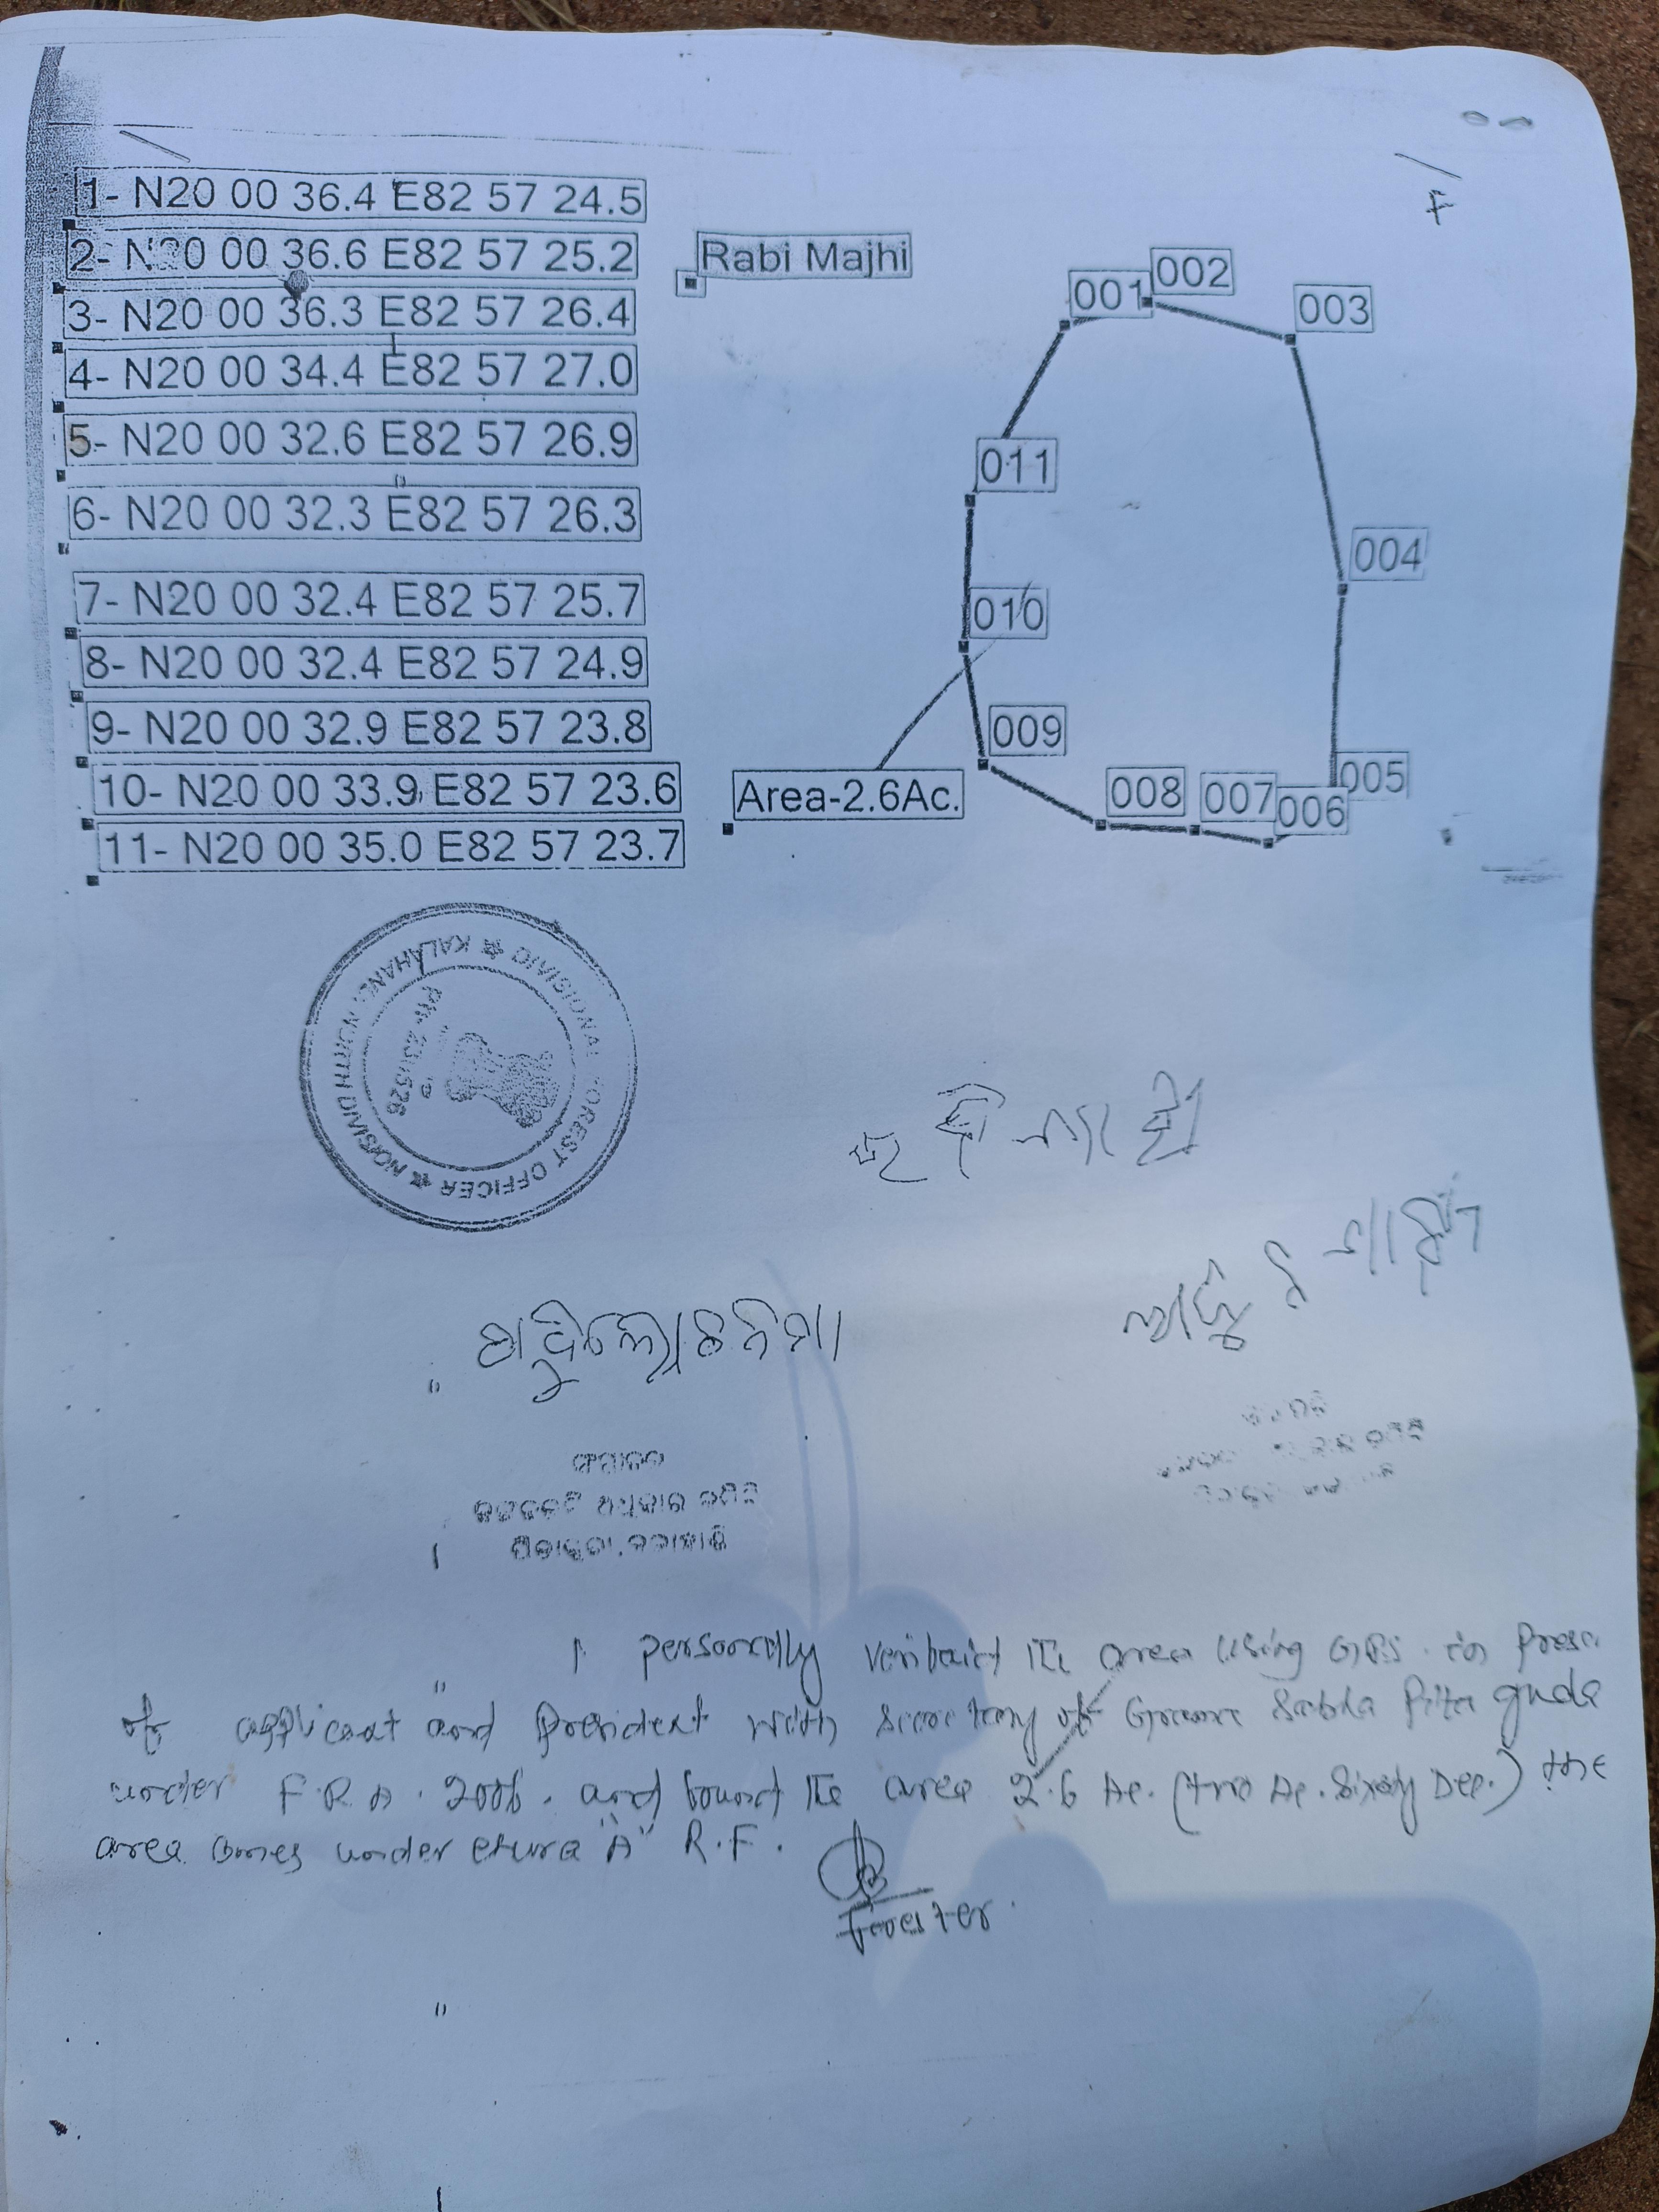 1- N20 00 36.4 E82 57 24.5
2- N20 00 36.6 E82 57 25.2
3- N20 00 36.3 E82 57 26.4
4- N20 00 34.4 E82 57 27.0
5- N20 00 32.6 E82 57 26.9
6- N20 00 32.3 E82 57 26.3
7- N20 00 32.4 E82 57 25.7
8- N20 00 32.4 E82 57 24.9
9- N20 00 32.9 E82 57 23.8
10- N20 00 33.9 E82 57 23.6
11- N20 00 35.0 E82 57 23.7
Rabi Majhi
001
002
003
004
005
006
007
008
009
010
011
Area-2.6Ac.
DIVISIONAL FOREST OFFICER ★ KALAHANDI NORTH DIVISION ★
ରବି ମାଝୀ
ମାଝୀ
ସମ୍ପାଦକ
I personally the area using GPS in
of applicant and President with secretary of Grama Sabha Pita guda
under F.R.A. 2006. and found the area 2.6 Ac. (two Ac. Sixty Dec.) the
area comes under "A" R.F.
Forester.